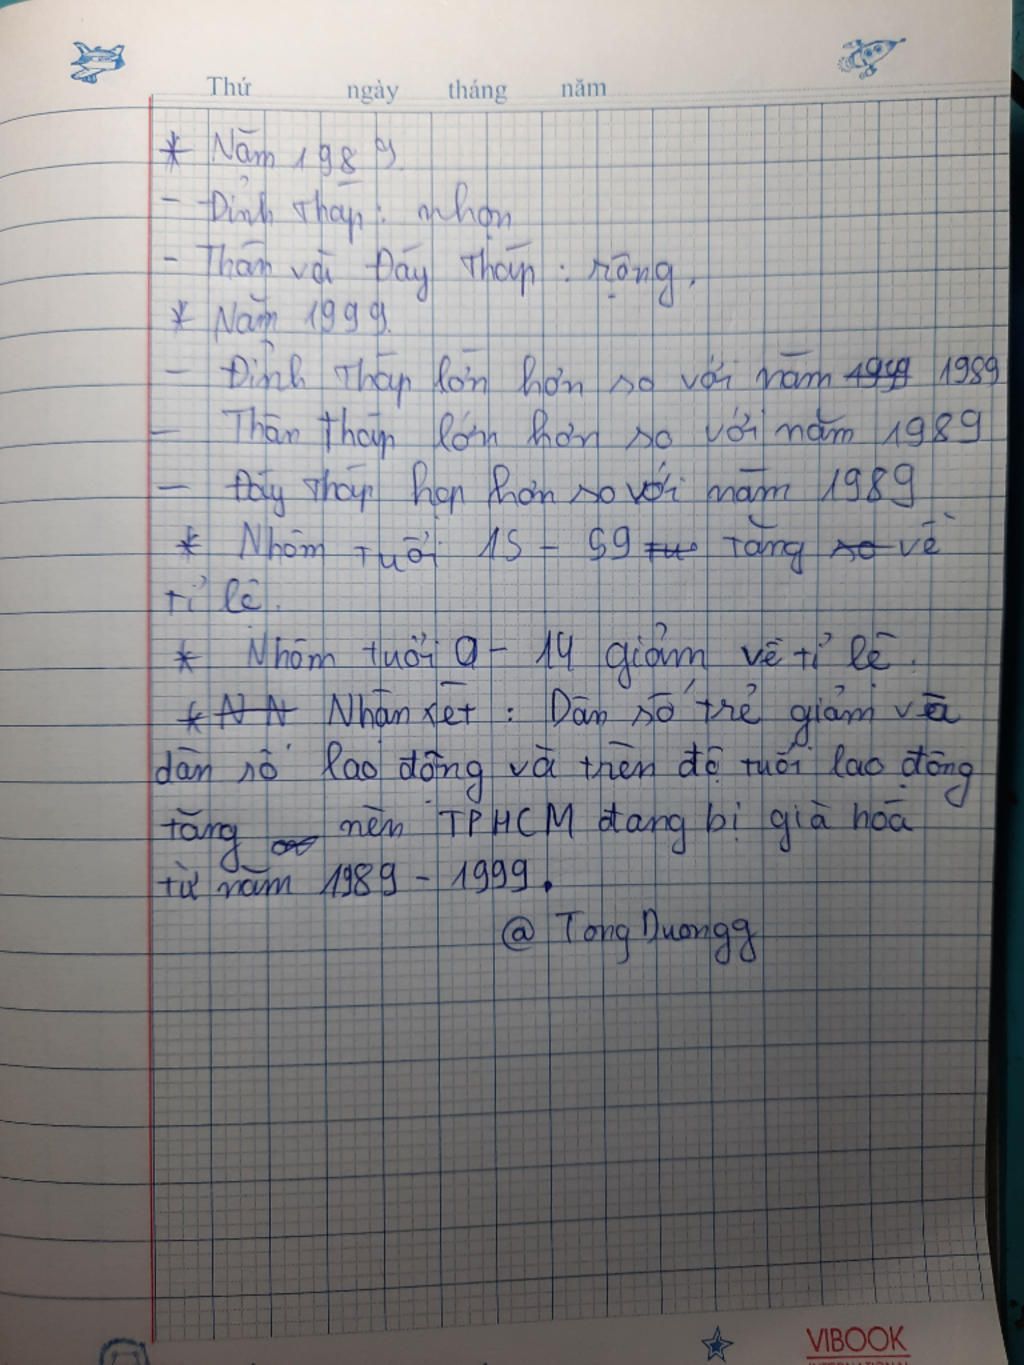 Thứ ngày tháng năm
* Năm 1989.
- Đỉnh Tháp: nhọn
- Thân và Đáy Tháp: rộng.
* Năm 1999.
- Đỉnh Tháp lớn hơn so với năm 1989
- Thân tháp lớn hơn so với năm 1989
- Đáy Tháp hẹp hơn so với năm 1989
* Nhóm tuổi 15 - 59 tăng về
tỉ lệ.
* Nhóm tuổi 0 - 14 giảm về tỉ lệ.
* Nhận xét: Dân số trẻ giảm và
dân số lao động và trên độ tuổi lao động
tăng nên TPHCM đang bị già hoá
từ năm 1989 - 1999.
@ Tong Duongg
VIBOOK
INTERNATIONAL